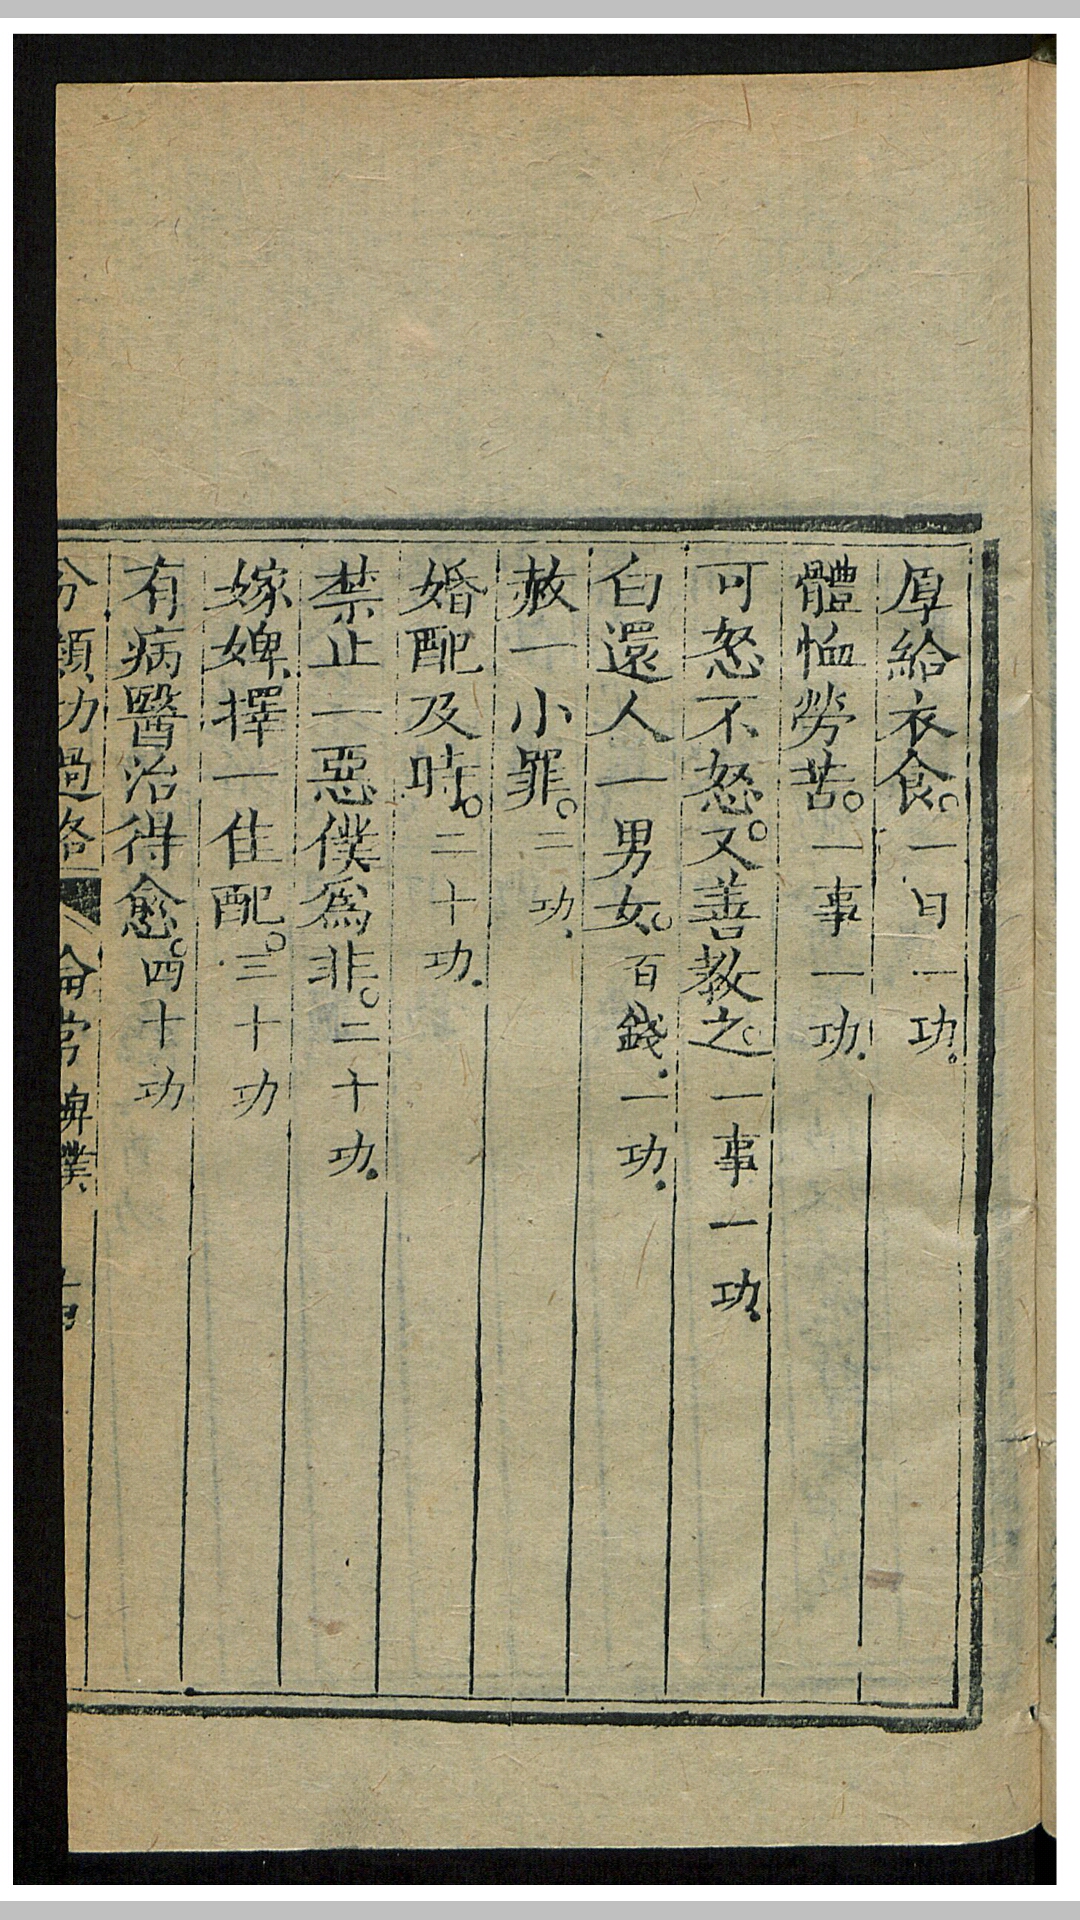 厚給衣食。一日一功。
體恤勞苦。一事一功.
可怒不怒。又善教之。一事一功.
白還人一男女。百錢.一功.
赦一小罪。二功.
婚配及時。二十功.
禁止一惡僕為非。二十功.
嫁婢擇一佳配。三十功
有病醫治得愈。四十功
分類功過格 倫常 婢僕